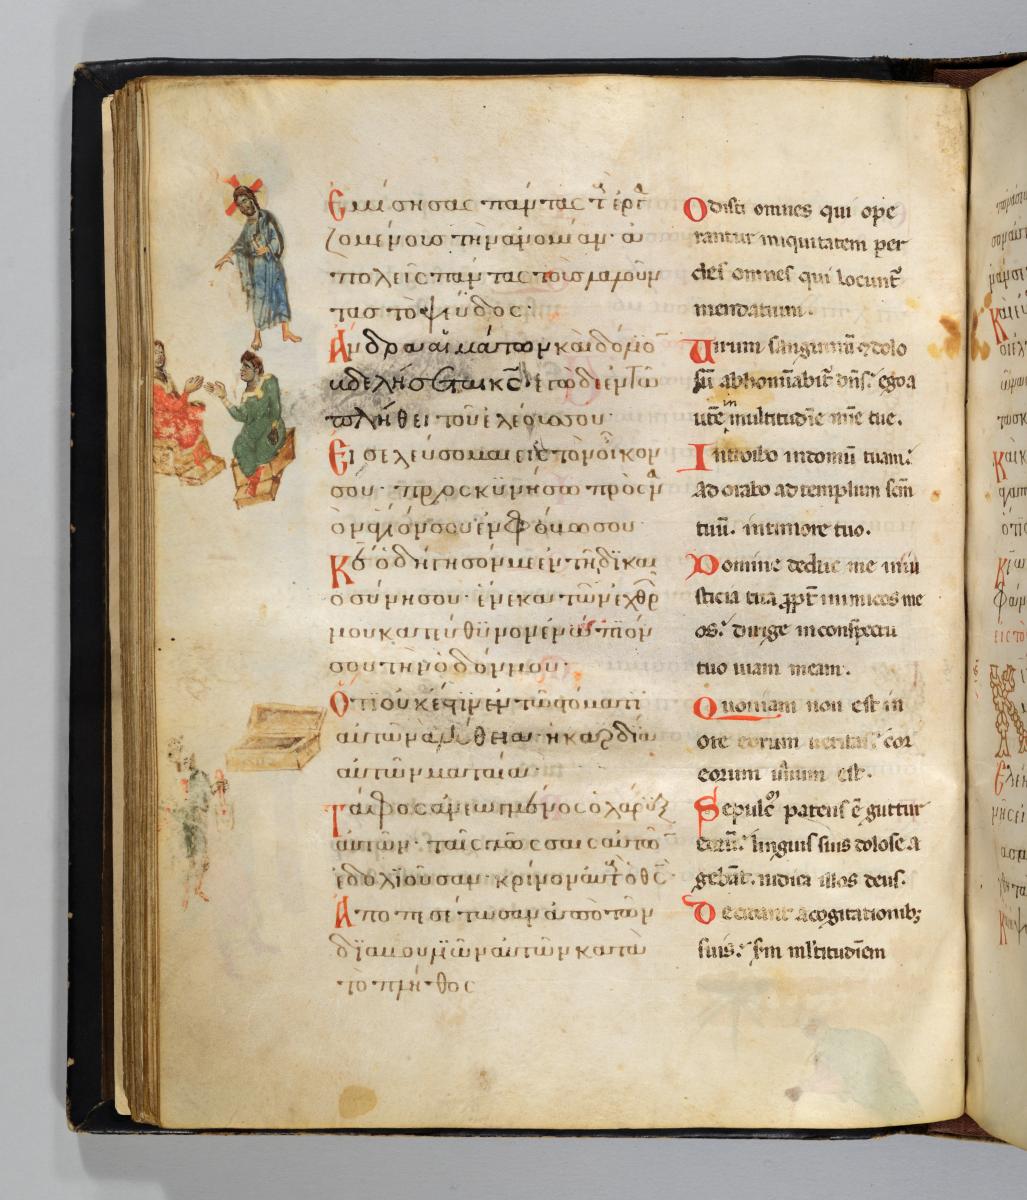 Ἐμίσησας πάντας τ̀ ἐργ
ζομένους τὴν ἀνομίαν· ἀ
πολεῖς πάντας τοὺς λαλοῦν
τας τὸ ψεῦδος·
Ἄνδρα αἱμάτων καὶ δόλιο
βδελύσσεται κς̄· ἐγὼ δὲ ἐν τῶ
πλήθει τοῦ ἐλέους σου·
Εἰσελεύσομαι εἰς τὸν οἶκον
σου· προσκυνήσω πρὸς ν
ὸν ἅγιόν σου ἐν φόβω σου·
Κε̄ ὁδήγησόν με ἐν τῆ δικαι
οσύνη σου· ἕνεκα τῶν ἐχθρ
μου κατεύθυνον ἐνώπιόν
σου τὴν ὁδόν μου·
Ὅτι οὐκ ἔστιν ἐν τῶ στόματι
αὐτῶν ἀλήθεια· ἡ καρδία
αὐτῶν ματαία·
Τάφος ἀνεωγμένος ὁ λάρυγξ
αὐτῶν· ταῖς γλώσσαις αὐτῶ
ἐδολιοῦσαν· κρῖνον αὐτ ὁ θς̄
Ἀποπεσάτωσαν ἀπὸ τῶν
διαβουλιῶν αὐτῶν κατὰ
τὸ πλῆθος
Odisti omnes qui ope
rantur iniquitatem per
des omnes qui locunt̄
mendatium.
Uirum sanguinū ⁊ dolo
sū abhominabit̄ dn̄s. ego a
utē in multitudīe mīe tue.
Introibo in domū tuam:
Adorabo ad templum sc̄m
tuū. in timore tuo.
Domine deduc me in iu
sticia tua ꝓpt̄ inimicos me
os. dirige in conspectu
tuo uiam meam.
Quoniam non est in
ore eorum ueritas. cor
eorum uanum est.
Sepulc̄ patens ē guttur
eorū. linguis suis dolose a
gebāt. iudica illos deus.
Decidant a cogitationib;
suis. sm̄ multitudīem